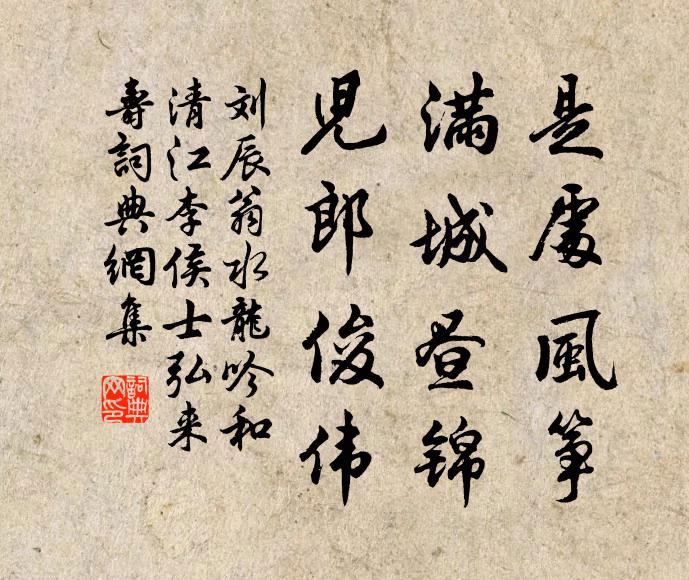 是處風箏
滿城昼锦
児郎俊伟
刘辰翁水龍吟和
清江李侯士弘来
壽詞典網集
詞典网印